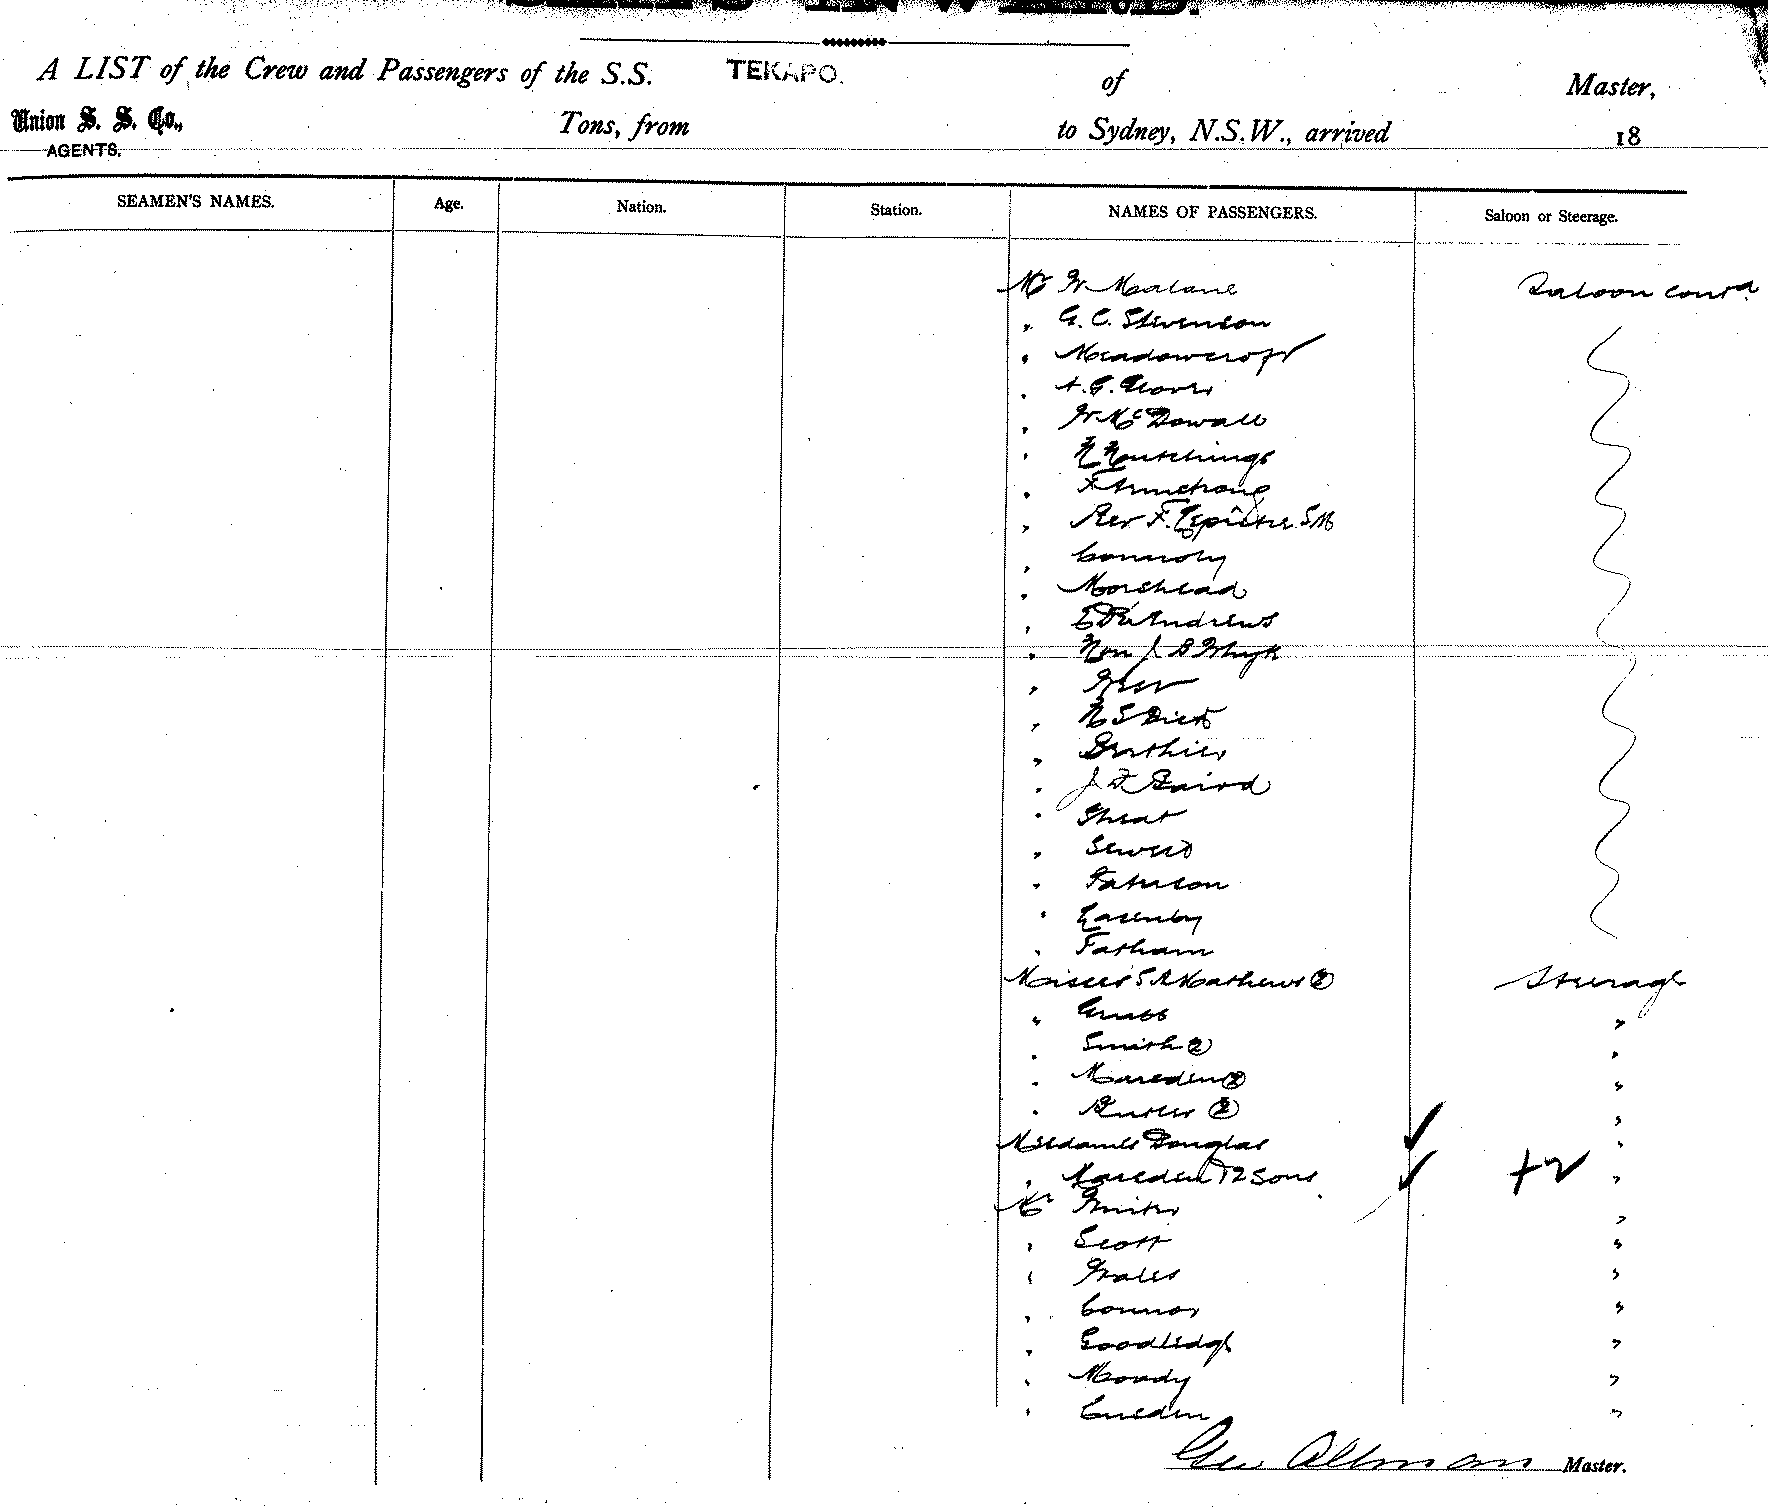 SHIPS INWARD.
A LIST of the Crew and Passengers of the S.S. TEKAPO. of Master,
Union S. S. Co., Tons, from to Sydney, N.S.W., arrived 18
AGENTS.
SEAMEN'S NAMES. Age. Nation. Station. NAMES OF PASSENGERS. Saloon or Steerage.
Mr W Malone Saloon contd
" G. C. Stevenson
" Meadowcroft
" A. G.
" W McDowall
" H Hutchings
" F Armstrong
" Rev F. SM
" Connoly
" Morshead
" Andrews
" Hon J B Whyte
" West
" H S Dick
" Duthie
" J F Baird
" Sheat
" Seweld
" Paterson
" Lasenby
" Fatham
Misses S A Mathews (2) Steerage
" Grubb "
" Smith (2) "
" Marsden (2) "
" Butler (2) "
Mesdames Douglas "
" Marsden & 2 Sons + 2 "
Mr "
" Scott "
" Wales "
" Connor "
" Goodlidge "
" Moody "
" "
Geo. Allman Master.